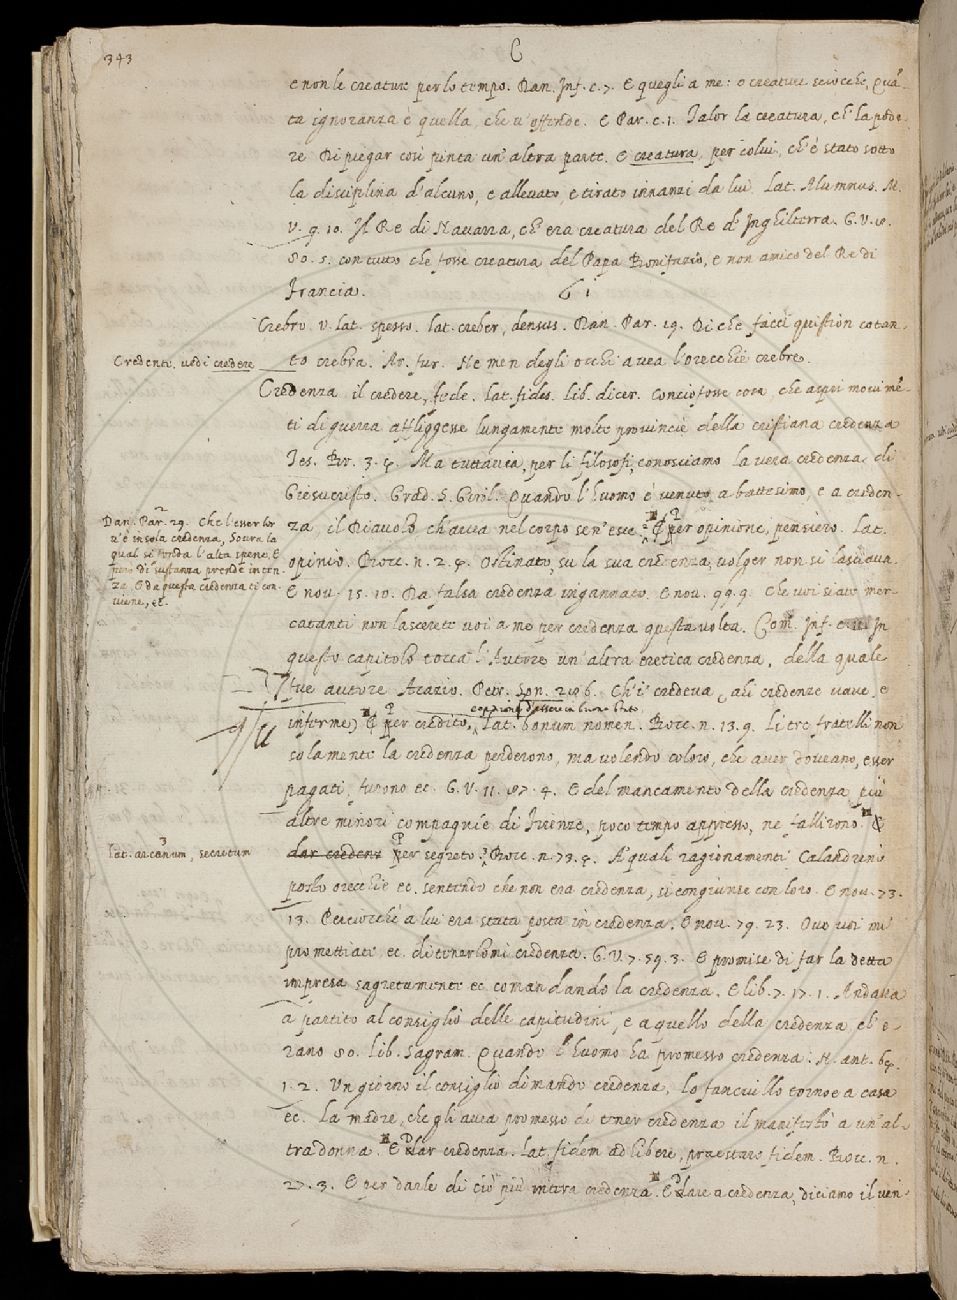 343
C
e non le creature per lo tempo. Dan. Inf. c. 7. E quegli a me: o creature sciocche, Quā-
ta ignoranza è quella, che v'offende. E Par. c. 1. Talor la creatura, c'ha pode-
re Di piegar così pinta in altra parte. E creatura, per colui, ch'è stato sotto
la disciplina d'alcuno, e allevato, e tirato innanzi da lui. Lat. Alumnus. M.
V. 9. 10. Il Re di Navarra, ch'era creatura del Re d'Inghilterra. G. V. 8.
80. 5. con tutto che fosse creatura del Papa Bonifazio, e non amico del Re di
Francia.
Crebro. v. lat. spesso. lat. creber, densus. Dan. Par. 19. Di che facci quistion cotan-
to crebra. Ar. Fur. Ne men degli occhi avea l'orecchie crebre.
Credente. vedi credere
Credenza il credere, fede. Lat. fides. Lib. dicer. Conciofosse cosa che aspri movimē-
ti di guerra affliggesse lungamente molte provincie della cristiana credenza
Tes. Br. 3. 4. Ma tuttavia, per li filosofi, conosciamo la vera credenza di
Giesucristo. Grad. S. Giril. Quando l'huomo è venuto a battesimo, e a creden-
za, il Diavolo ch'avea nel corpo sen'esce. Per opinione, pensiero. Lat.
Dan. Par. 29. Che l'esser lor
v'è in sola credenza, Sovra la
qual si fonda l'alta spene, E
però di sustanza prende inten-
za. E da questa credenza ci con-
viene, ec.
opinio. Bocc. n. 2. 4. Ostinato su la sua credenza, volger non si lasciava.
E nov. 15. 10. Da falsa credenza ingannato. E nov. 99. 9. Che voi siate mer-
catanti non lascerete voi a me per credenza questa volta. Com. Inf. c. 11. In
questo capitolo tocca l'Autore un'altra eretica credenza, della quale
fue autore Acazio. Petr. Son. 296. Ch'i' credeva, ahi credenze vane, e
inferme) E per credito, opinione d'essere in buono stato. Lat. bonum nomen. Bocc. n. 13. 9. Li tre fratelli non
solamente la credenza perderono, ma volendo coloro, che aver doveano, esser
pagati, furono ec. G. V. 11. 87. 4. E del mancamento della credenza più
altre minori compagnie di Firenze, poco tempo appresso, ne fallirono. E
lat. arcanum, secretum
dar credenz per segreto. Bocc. n. 73. 4. A quali ragionamenti Calandrino
posto orecchie ec. sentendo che non era credenza, si congiunse con loro. E nov. 73.
13. Perciocchè a lui era stata posta in credenza. E nov. 79. 23. Ove voi mi
promettiate ec. di tenerlomi credenza. G. V. 7. 59. 3. E promise di far la detta
impresa sagretamente ec comandando la credenza. E lib. 7. 17. 1. Andava
a partito al consiglio delle capitudini, e a quello della credenza, ch'e-
rano 80. Lib. Sagram. Quando l'huomo ha promesso credenza. N. ant. 64.
1. 2. Un giorno il consiglio dimandò credenza, lo fanciullo tornoe a casa
ec. la madre, che gli avea promesso di tener credenza il manifestò a un'al-
tra donna. E dar credenza. Lat. fidem adhibere, praestare fidem. Bocc. n.
27. 3. E per darle di ciò più intera credenza. E dare a credenza, diciamo il ven-